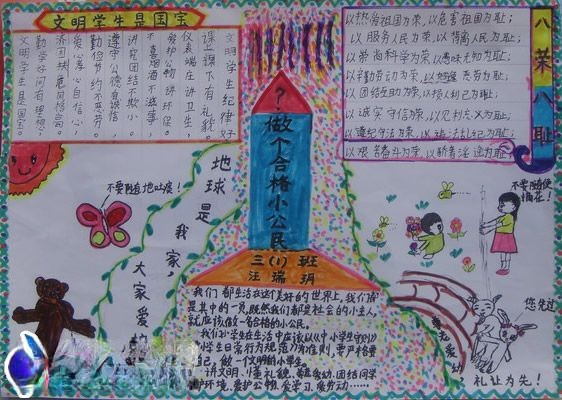 文明学生是国宝
文明学生纪律好
课上课下有礼貌。
仪表端庄讲卫生，
爱护公物讲环保。
不喜烟酒不滋事，
讲究团结不欺小。
遵守公德真诚信，
勤俭节约不怕劳。
爱心善心自信心
济困扶危风格高。
勤学好问有理想，
文明学生是国宝。
八荣八耻
以热爱祖国为荣，以危害祖国为耻；
以服务人民为荣，以背离人民为耻；
以崇尚科学为荣，以愚昧无知为耻；
以辛勤劳动为荣，以好逸恶劳为耻；
以团结互助为荣，以损人利己为耻；
以诚实守信为荣，以见利忘义为耻；
以遵纪守法为荣，以违法乱纪为耻；
以艰苦奋斗为荣，以骄奢淫逸为耻；
？
做个合格小公民
三(1)班
汪瑞玥
地球是我家，
大家爱护
不要随地吐痰！
不要随便
摘花！
您先过
尊老爱幼
礼让为先！
我们都生活在这个美好的世界上，我们即
是其中的一员，既然我们都是社会的小主人，
就应该做一名合格的小公民。
我们小学生在生活中应该以《中小学生守则》
小学生日常行为规范》为准则，要严格要
自己，做一个文明的小学生。
讲文明、懂礼貌、尊老爱幼、团结同学
护环境、爱护公物、爱学习、爱劳动……